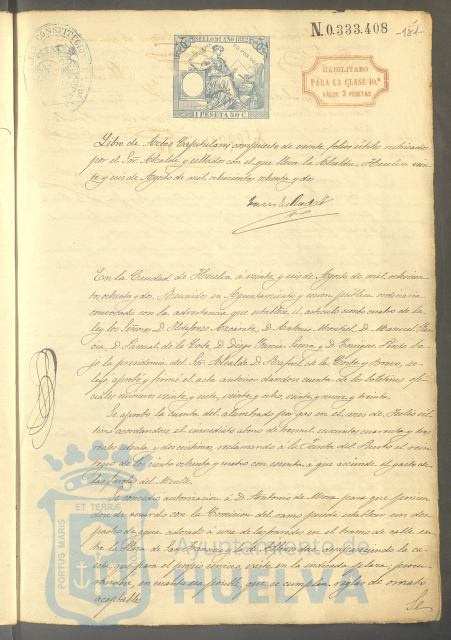 N.0.333.408
CONSTITUCION
SELLO 9º AÑO 1882
1 PESETA 50 C.
HABILITADO
PARA LA CLASE 10.ª
VALOR 3 PESETAS
Libro de Actas Capitulares compuesto de veinte folios útiles rubricados
por el Sor. Alcalde y sellados con el que lleva la Alcaldía. Huelva vein
te y seis de Agosto de mil ochocientos ochenta y dos
En la Ciudad de Huelva á veinte y seis de Agosto de mil ochocien
tos ochenta y dos. Reunidos en Ayuntamiento y sesion pública ordinaria
convocada con la advertencia que establece el artículo ciento cuatro de la
ley los Señores D. Ildefonso D. Antonio D. Manuel Gar
cia, D. de la Corte, D. Diego Garcia D. Enrique ba
jo la presidencia del Sor. Alcalde D. Rafael de la Corte y Bravo, se
leyó, aprobó y firmó el acta anterior dandose cuenta de los boletines ofi
ciales números veinte y siete, veinte y ocho, veinte y nueve y treinta.
Se aprobó la cuenta del alumbrado por gas en el mes de Julio úl
timo acordandose el inmediato abono de tres mil cuarenta y dos
reales ochenta y dos centimos, reclamando a la Junta del Puerto el rein
tegro de los ciento ochenta y cuatro con cuarenta a que asciende el gasto de
las farolas del Muelle.
Se concedió autorizacion á D. Antonio de Mora para que ponien
dose de acuerdo con la Comision del ramo pueda establecer un des
pacho de agua adosado á uno de los en el tramo de calle en
tre la Plaza de las Monjas y la de
seta que para el propio existe en la indicada plaza, procu
randose, en cuanto sea posible, que se cumplan reglas de ornato
aceptable.
Se
PORTUS MARIS
ET TERRÆ
Ayuntamiento de
HUELVA